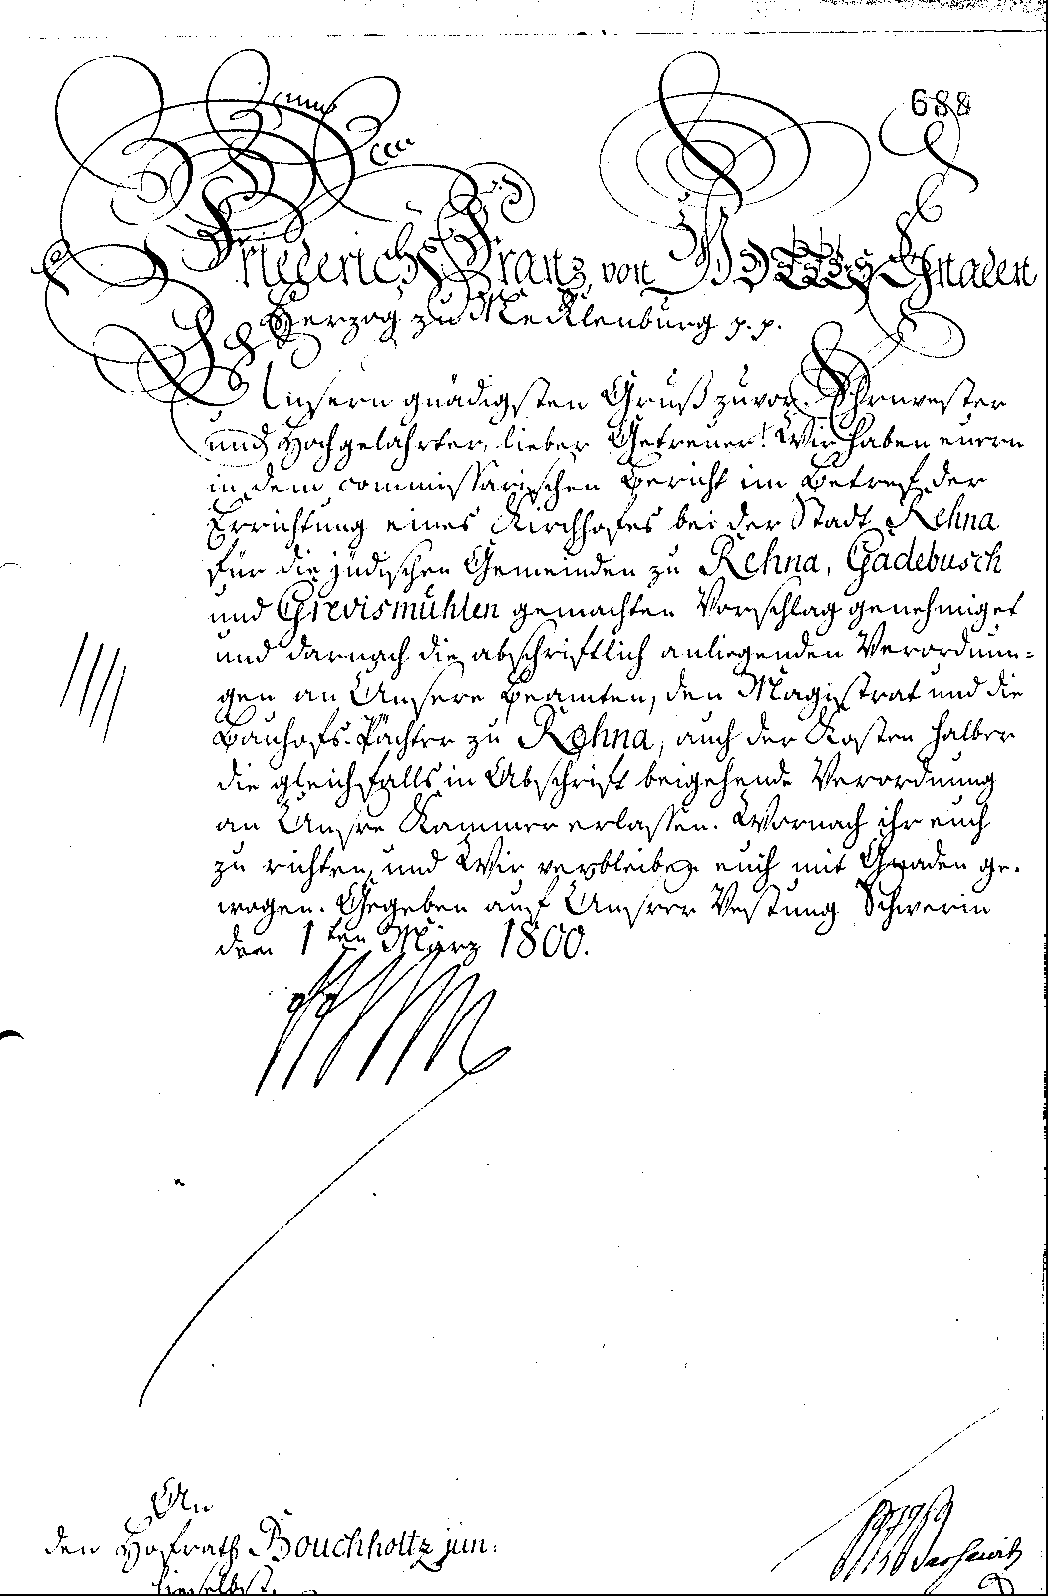 688
Friederich Franz, von GOTTES Gnaden
Herzog zu Mecklenburg p. p.
Unsern gnädigsten Gruß zuvor. Ehrnvester
und Hochgelahrter, lieber Getreuer! Wir haben euern
in dem commissarischen Bericht im Betref der
Errichtung eines Kirchhofes bei der Stadt Rehna
für die jüdischen Gemeinden zu Rehna, Gadebusch
und Grevismühlen gemachten Vorschlag genehmiget
und darnach die abschriftlich anliegenden Verordnun=
gen an Unsere Beamten, den Magistrat und die
Bauhofs-Pächter zu Rehna, auch der Kosten halber
die gleichfalls in Abschrift beigehende Verordnung
an Unsre Kammer erlassen. Wornach ihr euch
zu richten, und Wir verbleiben euch mit Gnaden ge-
wogen. Gegeben auf Unsrer Vestung Schwerin
den 1ten März 1800.
An
den Hofrath Bouchholtz jun:
hieselbst.